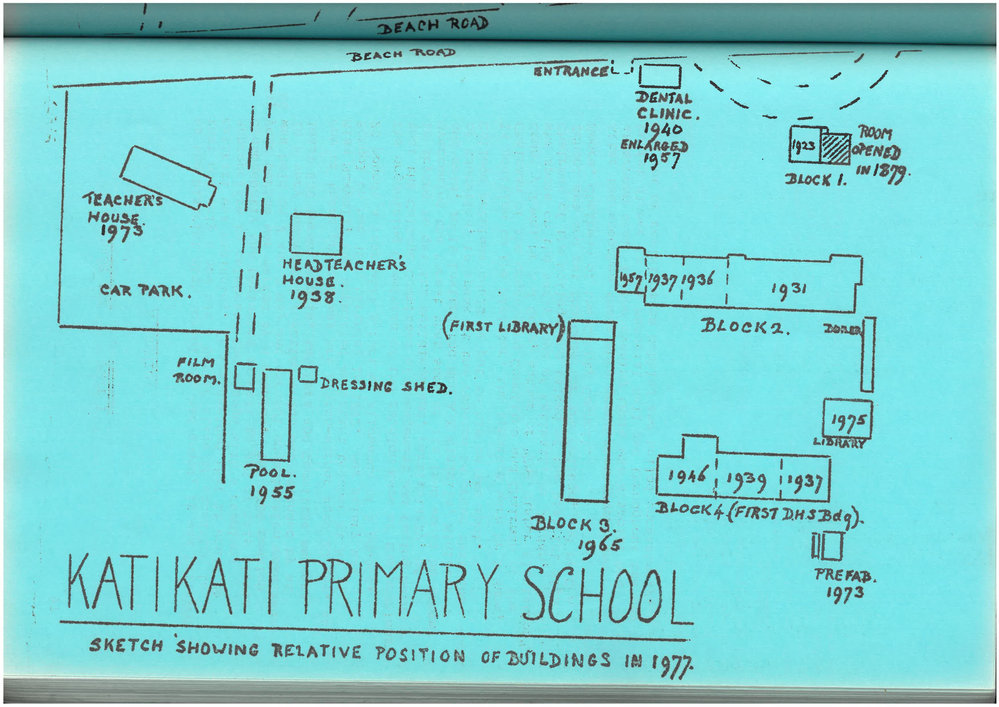 BEACH ROAD
BEACH ROAD
ENTRANCE
DENTAL
CLINIC.
1940
ENLARGED
1957
1923
ROOM
OPENED
IN 1879.
BLOCK 1.
TEACHER'S
HOUSE.
1973
CAR PARK.
HEADTEACHER'S
HOUSE.
1938.
1957
1937
1936
1931
BLOCK 2.
(FIRST LIBRARY)
BOILER
FILM
ROOM.
DRESSING SHED.
POOL.
1955
1975
LIBRARY
1946
1939
1937
BLOCK 4. (FIRST D.H.S Bdg).
BLOCK 3.
1965
PREFAB.
1973
KATIKATI PRIMARY SCHOOL
SKETCH SHOWING RELATIVE POSITION OF BUILDINGS IN 1977.